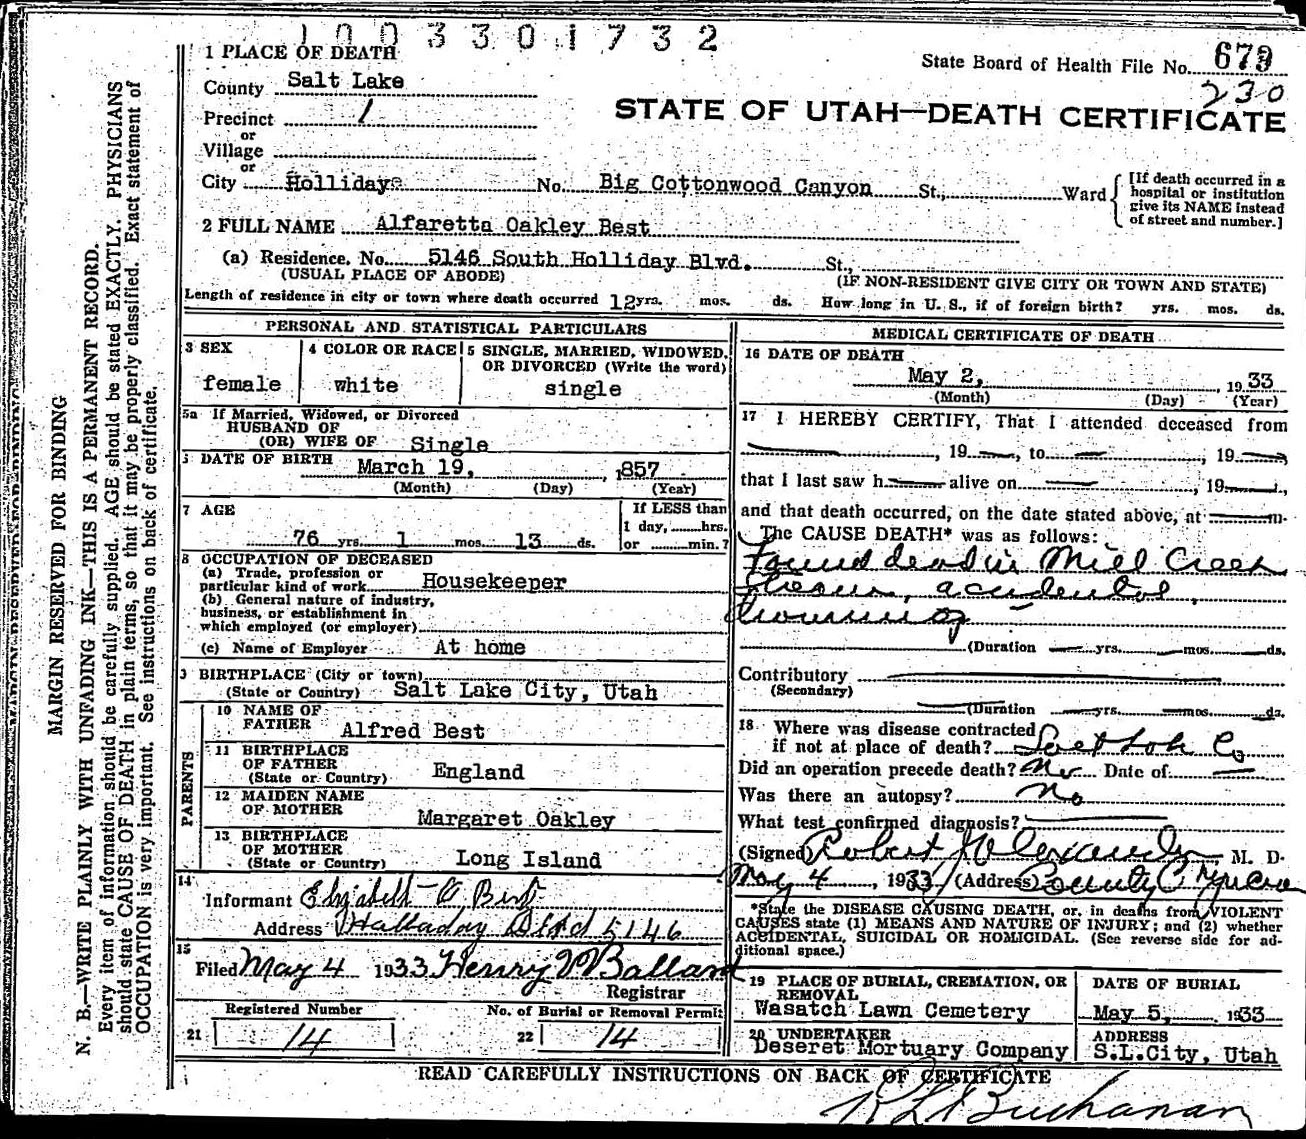 1003301732
1 PLACE OF DEATH
State Board of Health File No. 679
230
County Salt Lake
STATE OF UTAH—DEATH CERTIFICATE
Precinct 1
or
Village
or
City Holliday No. Big Cottonwood Canyon St., Ward
[If death occurred in a
hospital or institution
give its NAME instead
of street and number.]
2 FULL NAME Alfaretta Oakley Best
(a) Residence. No. 5146 South Holliday Blvd. St.,
(USUAL PLACE OF ABODE) (IF NON-RESIDENT GIVE CITY OR TOWN AND STATE)
Length of residence in city or town where death occurred 12 yrs. mos. ds. How long in U. S., if of foreign birth? yrs. mos. ds.
PERSONAL AND STATISTICAL PARTICULARS
3 SEX
female
4 COLOR OR RACE
white
5 SINGLE, MARRIED, WIDOWED,
OR DIVORCED (Write the word)
single
5a If Married, Widowed, or Divorced
HUSBAND OF
(OR) WIFE OF Single
DATE OF BIRTH March 19, 1857
(Month) (Day) (Year)
7 AGE
76 yrs. 1 mos. 13 ds.
If LESS than
1 day, hrs.
or min.?
8 OCCUPATION OF DECEASED
(a) Trade, profession or
particular kind of work Housekeeper
(b) General nature of industry,
business, or establishment in
which employed (or employer)
(c) Name of Employer At home
9 BIRTHPLACE (City or town)
(State or Country) Salt Lake City, Utah
PARENTS
10 NAME OF
FATHER Alfred Best
11 BIRTHPLACE
OF FATHER
(State or Country) England
12 MAIDEN NAME
OF MOTHER Margaret Oakley
13 BIRTHPLACE
OF MOTHER
(State or Country) Long Island
14
Informant Elizabeth O Best
Address Halladay Blvd 5146
15
Filed May 4 1933 Henry W Ballard
Registrar
Registered Number
21 14
No. of Burial or Removal Permit
22 14
MEDICAL CERTIFICATE OF DEATH
16 DATE OF DEATH
May 2, 1933
(Month) (Day) (Year)
17 I HEREBY CERTIFY, That I attended deceased from
, 19 , to , 19
that I last saw h alive on , 19 ,
and that death occurred, on the date stated above, at m.
The CAUSE DEATH* was as follows:
Found dead in Mill Creek
stream, accidental
drowning
(Duration yrs. mos. ds.
Contributory
(Secondary)
(Duration yrs. mos. ds.
18 Where was disease contracted
if not at place of death? Salt Lake Co
Did an operation precede death? No Date of
Was there an autopsy? No
What test confirmed diagnosis?
(Signed) Robert J Alexander M. D.
May 4, 1933 (Address County Physician
*State the DISEASE CAUSING DEATH, or, in deaths from VIOLENT
CAUSES state (1) MEANS AND NATURE OF INJURY; and (2) whether
ACCIDENTAL, SUICIDAL OR HOMICIDAL. (See reverse side for ad-
ditional space.)
19 PLACE OF BURIAL, CREMATION, OR
REMOVAL
Wasatch Lawn Cemetery
DATE OF BURIAL
May 5, 1933
20 UNDERTAKER
Deseret Mortuary Company
ADDRESS
S.L.City, Utah
READ CAREFULLY INSTRUCTIONS ON BACK OF CERTIFICATE
Buchanan
MARGIN RESERVED FOR BINDING
N. B.—WRITE PLAINLY WITH UNFADING INK—THIS IS A PERMANENT RECORD.
Every item of information should be carefully supplied. AGE should be stated EXACTLY. PHYSICIANS
should state CAUSE OF DEATH in plain terms, so that it may be properly classified. Exact statement of
OCCUPATION is very important. See instructions on back of certificate.